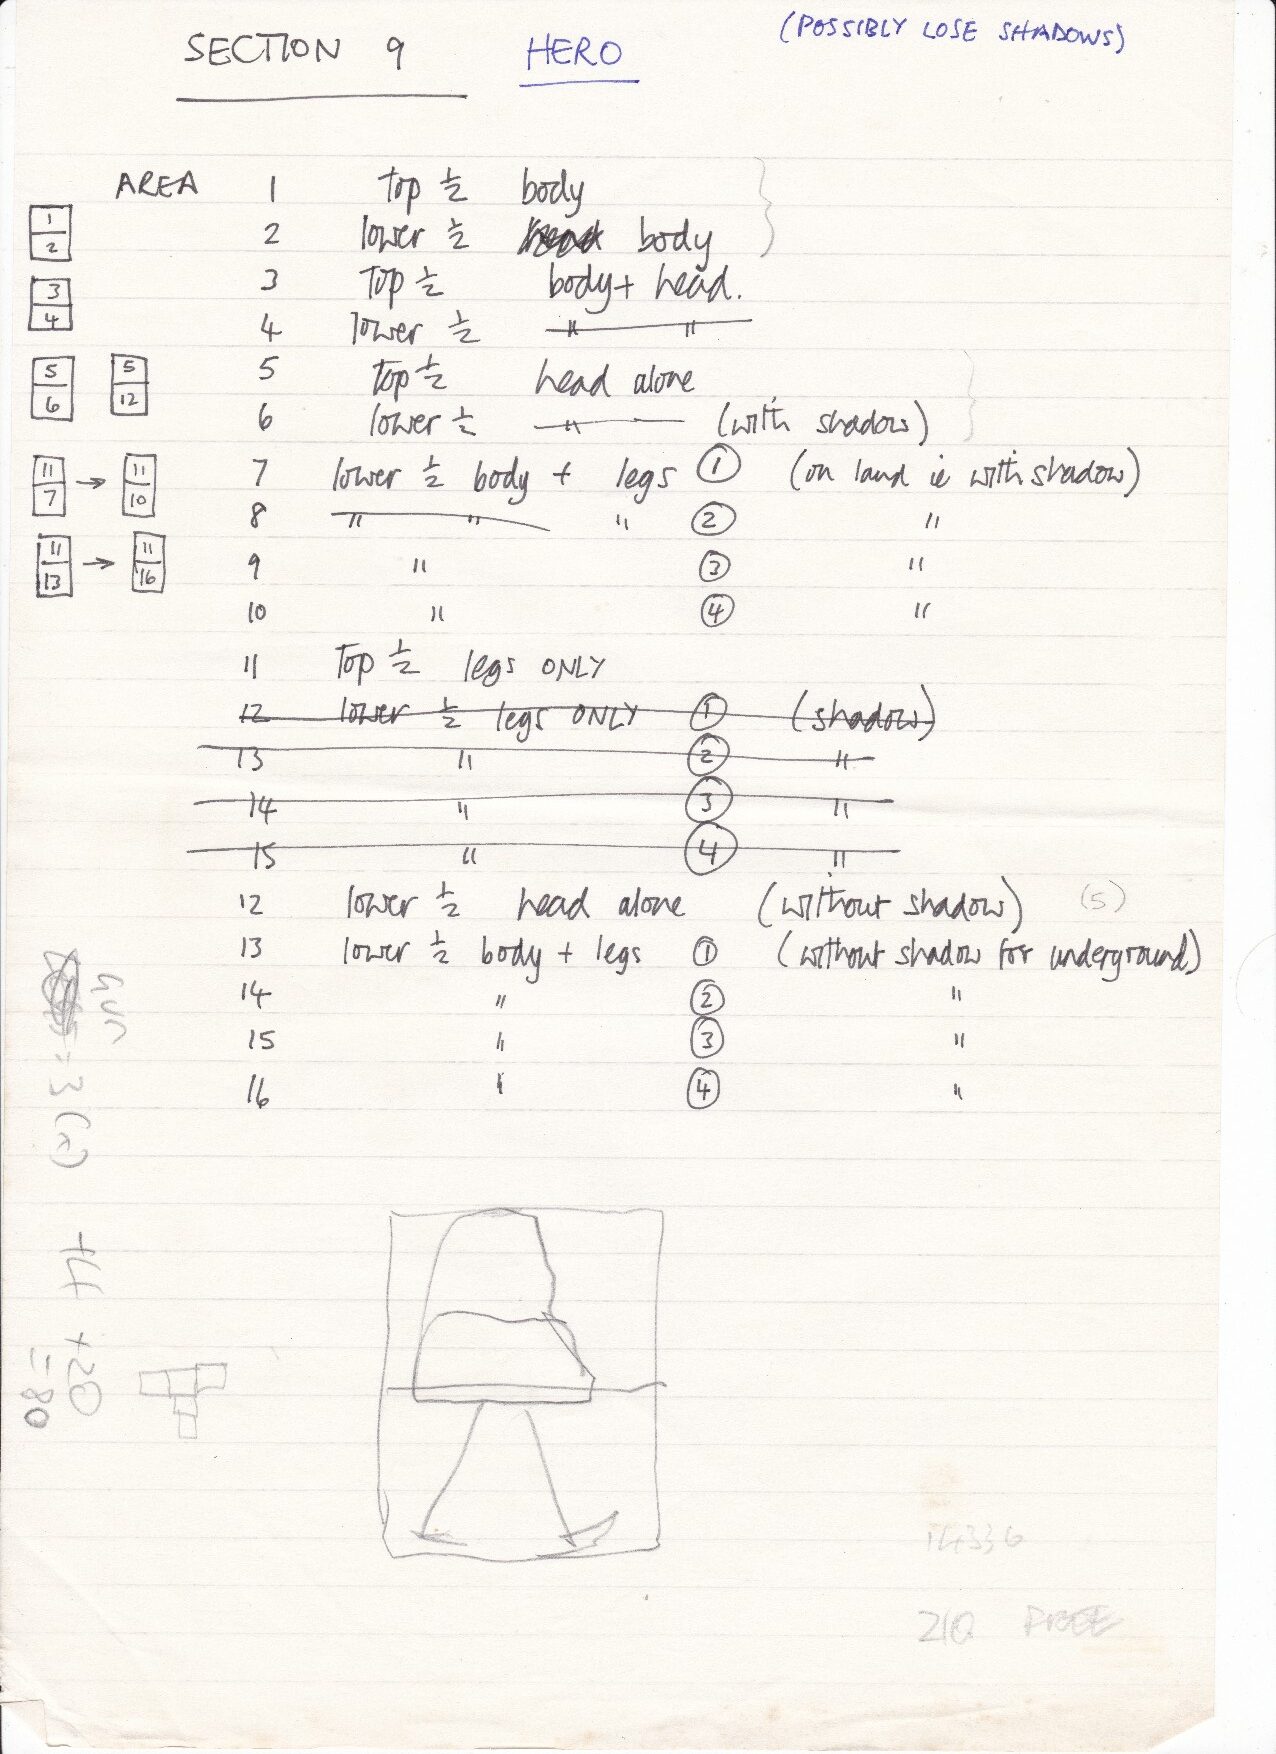 SECTION 9 HERO (POSSIBLY LOSE SHADOWS)
AREA 1 top 1/2 body
1 2
2 lower 1/2 body
3 4
3 Top 1/2 body + head.
4 lower 1/2 " "
5 6 5 12
5 top 1/2 head alone
6 lower 1/2 " (with shadow)
11 7 → 11 10
7 lower 1/2 body + legs ① (on land ie with shadow)
8 " " " ② "
11 13 → 11 16
9 " ③ "
10 " ④ "
11 Top 1/2 legs ONLY
12 lower 1/2 legs ONLY ① (shadow)
13 " ② "
14 " ③ "
15 " ④ "
12 lower 1/2 head alone (without shadow) (5)
13 lower 1/2 body + legs ① (without shadow for underground)
14 " ② "
15 " ③ "
16 " ④ "
= 3 (x)
+ 20
= 80
14336
210 FREE